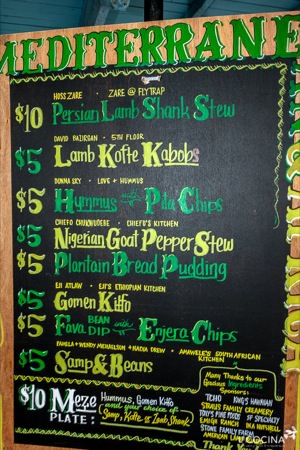 MEDITERRANE
HOSS ZARE · ZARE @ FLYTRAP
$10 Persian Lamb Shank Stew
DAVID BAZIRGAN · 5TH FLOOR
$5 Lamb Kofte Kabobs
DONNA SKY · LOVE & HUMMUS
$5 Hummus with Pita Chips
CHEFO CHUKWUDEBE · CHIEFO'S KITCHEN
$5 Nigerian Goat Pepper Stew
$5 Plantain Bread Pudding
EJI ATLAW · EJI'S ETHIOPIAN KITCHEN
$5 Gomen Kitfo
$5 Fava BEAN DIP with Enjera Chips
PAMELA + WENDY MICHAELSON + NADIA DREW · AMAWELE'S SOUTH AFRICAN KITCHEN
$5 Samp & Beans
$10 MEZE PLATE:
Hummus, Gomen Kitfo
and your choice of
Samp, Kofte or Lamb Shank
Many Thanks to our
Gracious Ingredients
Sponsors:
TCHO
STRAUS FAMILY CREAMERY
TONY'S FINE FOODS
EMIGH RANCH
STONE FAMILY FARM
AMERICAN LAMB
KING'S HAWAIIAN
SF SPECIALTY
IN A NUTSHELL
Thank You
COCINA